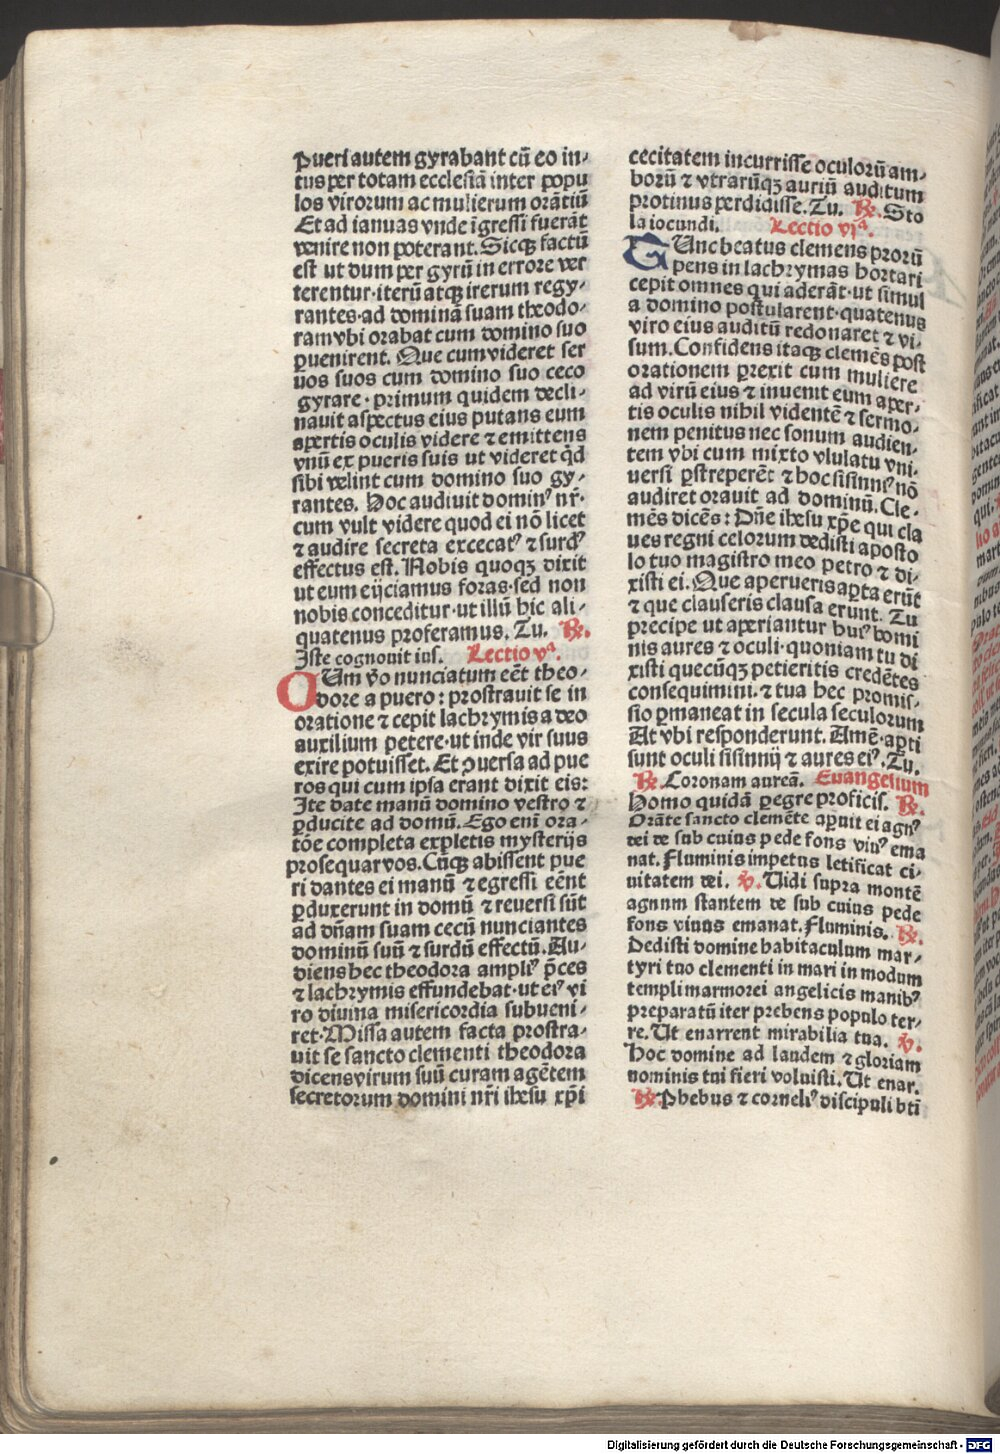 Pueri autem gyrabant cū eo in⸗
tus per totam ecclesiā inter popu
los virorum ac mulierum orātiū
Et ad ianuas vnde īgressi fuerāt
venire non poterant. Sicqꝫ factū
est ut dum per gyrū in errore ver
terentur·iterū atqꝫ iterum regy⸗
rantes·ad dominā suam theodo⸗
ram vbi orabat cum domino suo
ꝑuenirent. Que cum videret ser
uos suos cum domino suo ceco
gyrare·primum quidem decli⸗
nauit aspectus eius putans eum
apertis oculis videre ⁊ emittens
vnū ex pueris suis ut videret qd̄
sibi velint cum domino suo gy⸗
rantes. Hoc audiuit dominꝰ nr̄·
cum vult videre quod ei nō licet
⁊ audire secreta excecatꝰ ⁊ surdꝰ
effectus est. Nobis quoqꝫ dixit
ut eum eijciamus foras·sed non
nobis conceditur·ut illū hic ali⸗
quatenus proferamus. Tu. ℞.
Iste cognouit ius. Lectio vᵃ.
CUm v̄o nunciatum eēt theo⸗
dore a puero: prostrauit se in
oratione ⁊ cepit lachrymis a deo
auxilium petere·ut inde vir suus
exire potuisset. Et ꝯuersa ad pue
ros qui cum ipsa erant dixit eis:
Ite date manū domino vestro ⁊
ꝑducite ad domū. Ego eni ora⸗
tōe completa expletis mysterijs
prosequar vos. Cūqꝫ abissent pue
ri dantes ei manū ⁊ egressi eēnt
ꝑduxerunt in domū ⁊ reuersi sūt
ad dn̄am suam cecū nunciantes
dominū suū ⁊ surdū effectū. Au⸗
diens hec theodora ampliꝰ p̄ces
⁊ lachrymis effundebat·ut eiꝰ vi
ro diuina misericordia subueni⸗
ret·Missa autem facta prostra⸗
uit se sancto clementi theodora
dicens virum suū curam agētem
secretorum domini nr̄i ihesu xp̄i
cecitatem incurrisse oculorū am⸗
borū ⁊ vtrarūqꝫ auriū auditum
protinus perdidisse. Tu. ℞. Sto
la iocundi. Lectio viᵃ.
TUnc beatus clemens prorū
pens in lachrymas hortari
cepit omnes qui aderāt·ut simul
a domino postularent·quatenus
viro eius auditū redonaret ⁊ vi⸗
sum. Confidens itaqꝫ clemēs post
orationem ꝑrexit cum muliere
ad virū eius ⁊ inuenit eum aper⸗
tis oculis nihil videntē ⁊ sermo⸗
nem penitus nec sonum audien⸗
tem vbi cum mixto vlulatu vni⸗
uersi ꝑstreperēt ⁊ hoc sisinniꝰ nō
audiret orauit ad dominū. Cle⸗
mēs dicēs: Dn̄e ihesu xp̄e qui cla
ues regni celorum dedisti aposto
lo tuo magistro meo petro ⁊ di⸗
xisti ei. Que aperueris aꝑta erūt
⁊ que clauseris clausa erunt. Tu
precipe ut aperiantur huiꝰ homi
nis aures ⁊ oculi·quoniam tu di
xisti quecūqꝫ petieritis credētes
consequimini. ⁊ tua hec promis⸗
sio ꝑmaneat in secula seculorum
At vbi responderunt. Amē·aꝑti
sunt oculi sisinnij ⁊ aures eiꝰ. Tu.
℞. Coronam aureā. Euangelium
Homo quidā ꝑegre proficis. ℞.
Orāte sancto clemēte aꝑuit ei agnꝰ
dei de sub cuius pede fons viuꝰ ema
nat. Fluminis impetus letificat ci⸗
uitatem dei. ℣. Uidi supra montē
agnum stantem de sub cuius pede
fons viuus emanat. Fluminis. ℞.
Dedisti domine habitaculum mar⸗
tyri tuo clementi in mari in modum
templi marmorei angelicis manibꝰ
preparatū iter prebens populo ter⸗
re. Ut enarrent mirabilia tua. ℣.
Hoc domine ad laudem ⁊ gloriam
nominis tui fieri voluisti. Ut enar.
℞. Phebus ⁊ corneliꝰ discipuli bt̄i
Digitalisierung gefördert durch die Deutsche Forschungsgemeinschaft - DFG